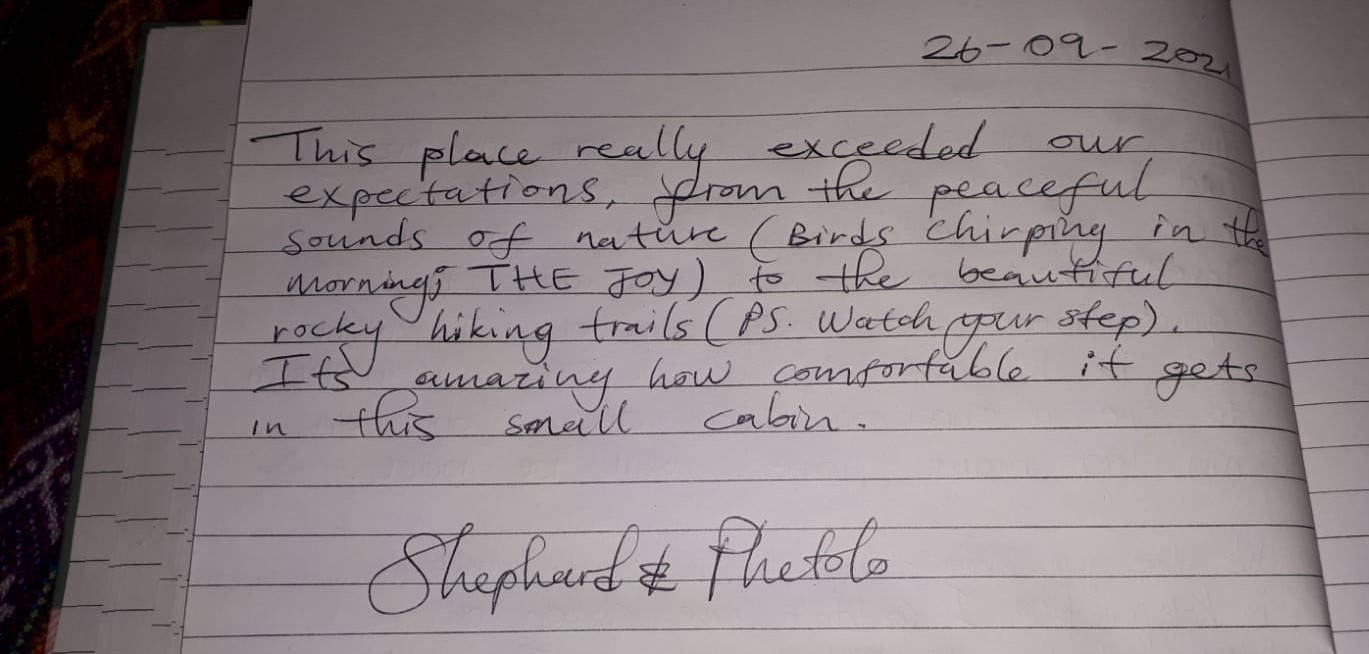 26-09-2021
This place really exceeded our
expectations, from the peaceful
sounds of nature (Birds chirping in the
morning; THE JOY) to the beautiful
rocky hiking trails (PS. Watch your step).
Its amazing how comfortable it gets
in this small cabin.
Shephard & Phetolo